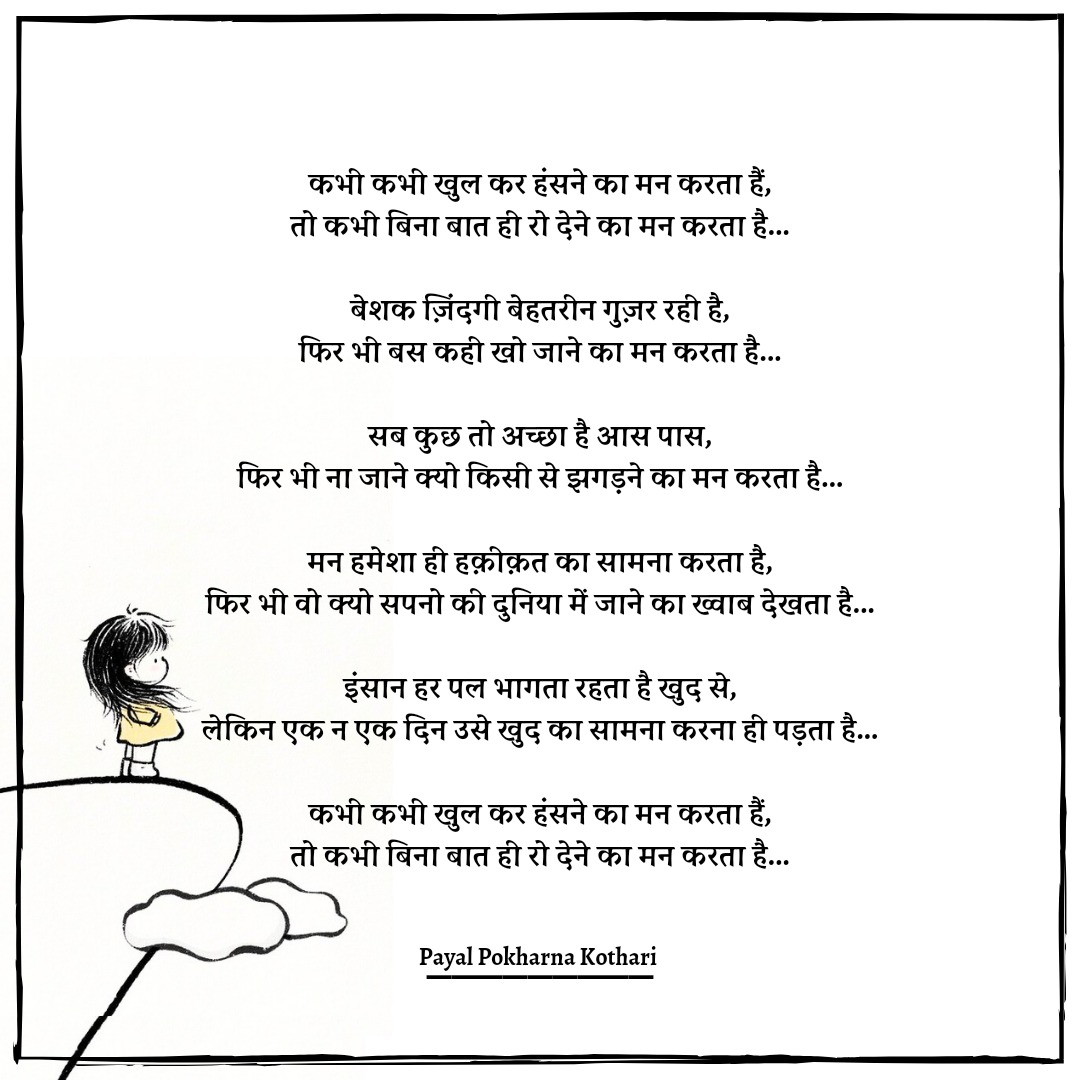 कभी कभी खुल कर हंसने का मन करता हैं,
तो कभी बिना बात ही रो देने का मन करता है...
बेशक ज़िंदगी बेहतरीन गुज़र रही है,
फिर भी बस कही खो जाने का मन करता है...
सब कुछ तो अच्छा है आस पास,
फिर भी ना जाने क्यो किसी से झगड़ने का मन करता है...
मन हमेशा ही हक़ीक़त का सामना करता है,
फिर भी वो क्यो सपनो की दुनिया में जाने का ख्वाब देखता है...
इंसान हर पल भागता रहता है खुद से,
लेकिन एक न एक दिन उसे खुद का सामना करना ही पड़ता है...
कभी कभी खुल कर हंसने का मन करता हैं,
तो कभी बिना बात ही रो देने का मन करता है...
Payal Pokharna Kothari